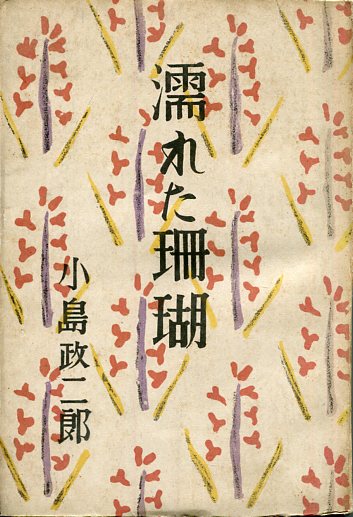 濡れた珊瑚
小島政二郎